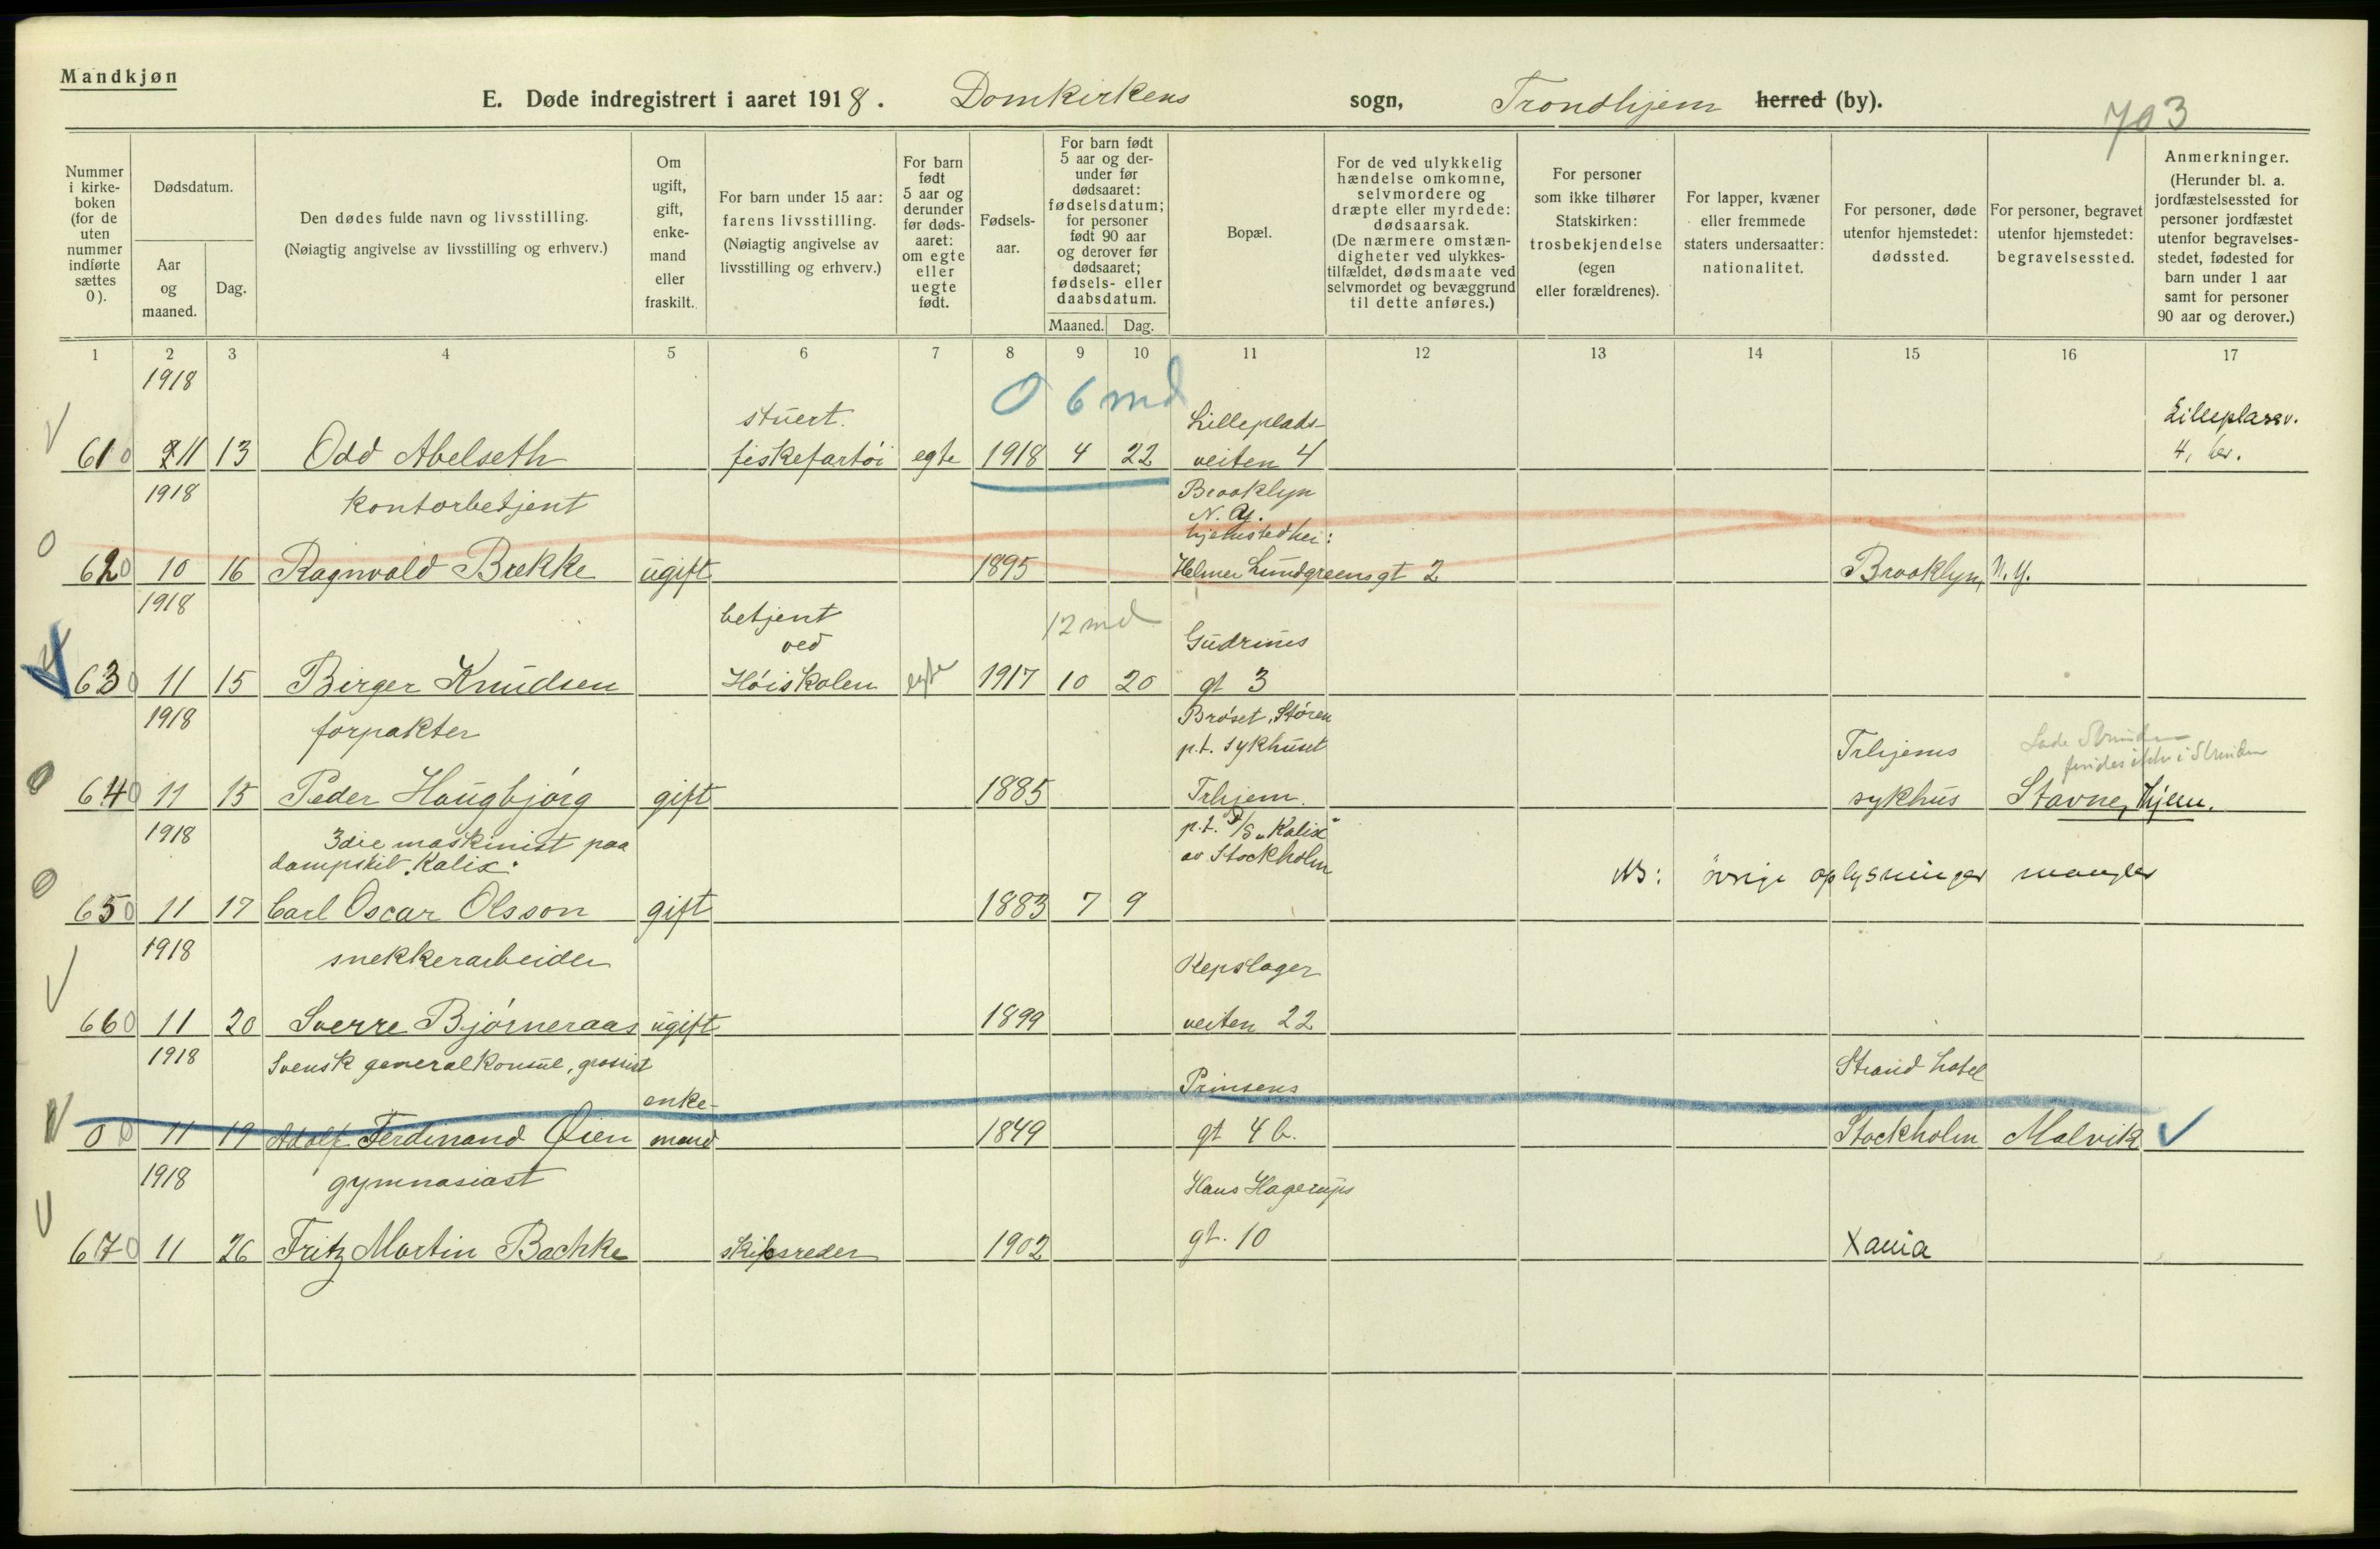 Mandkjøn
E. Døde indregistrert i aaret 1918. Domkirkens sogn, Trondhjem herred (by).
703
Nummer i kirkeboken (for de uten nummer indførte sættes 0).
Dødsdatum.
Aar og maaned.
Dag.
Den dødes fulde navn og livsstilling.
(Nøiagtig angivelse av livsstilling og erhverv.)
Om ugift, gift, enkemand eller fraskilt.
For barn under 15 aar: farens livsstilling.
(Nøiagtig angivelse av livsstilling og erhverv.)
For barn født 5 aar og derunder før dødsaaret: om egte eller uegte født.
Fødselsaar.
For barn født 5 aar og derunder før dødsaaret: fødselsdatum; for personer født 90 aar og derover før dødsaaret; fødsels- eller daabsdatum.
Maaned. Dag.
Bopæl.
For de ved ulykkelig hændelse omkomne, selvmordere og dræpte eller myrdede: dødsaarsak.
(De nærmere omstændigheter ved ulykkestilfældet, dødsmaate ved selvmordet og bevæggrund til dette anføres.)
For personer som ikke tilhører Statskirken: trosbekjendelse (egen eller forældrenes).
For lapper, kvæner eller fremmede staters undersaatter: nationalitet.
For personer, døde utenfor hjemstedet: dødssted.
For personer, begravet utenfor hjemstedet: begravelsessted.
Anmerkninger.
(Herunder bl. a. jordfæstelsessted for personer jordfæstet utenfor begravelsesstedet, fødested for barn under 1 aar samt for personer 90 aar og derover.)
1 2 3 4 5 6 7 8 9 10 11 12 13 14 15 16 17
1918
0 6 md
stuert. Lilleplads- Lilleplassv.
610 11 13 Odd Abelseth fiskefartöi egte 1918 4 22 veiten 4 4, her.
1918 kontorbetjent Brooklyn
N. Y.
hjemsted her:
0
620 10 16 Ragnvald Brekke ugift 1895 Helmer Lundgreensgt 2 Brooklyn, N. Y.
1918
betjent 12 md
ved Gudruns
630 11 15 Birger Knudsen Höiskolen egte 1917 10 20 gt 3
1918 forpakter Bröset, Stören
p.t. sykhuset Trhjems Lade Strinden
findes ikke i Strinden
0
640 11 15 Peder Haugbjörg gift 1885 Trhjem. sykhus Stavne, Thjem.
1918 3die maskinist paa p.t. D/S "Kalix"
dampskib "Kalix". av Stockholm
0 NB: övrige oplysninger mangler
650 11 17 Carl Oscar Olsson gift 1883 7 9
1918 snekkerarbeider Repslager
660 11 20 Sverre Björneraas ugift 1899 veiten 22
1918 Svensk generalkonsul, grossist Strand hotel
enke- Prinsens
00 11 19 Adolf Ferdinand Øien mand 1849 gt 4 b. Stockholm Malvik
1918 gymnasiast Hans Hagerups
670 11 26 Fritz Martin Bachke skibsreder 1902 gt. 10 Xania